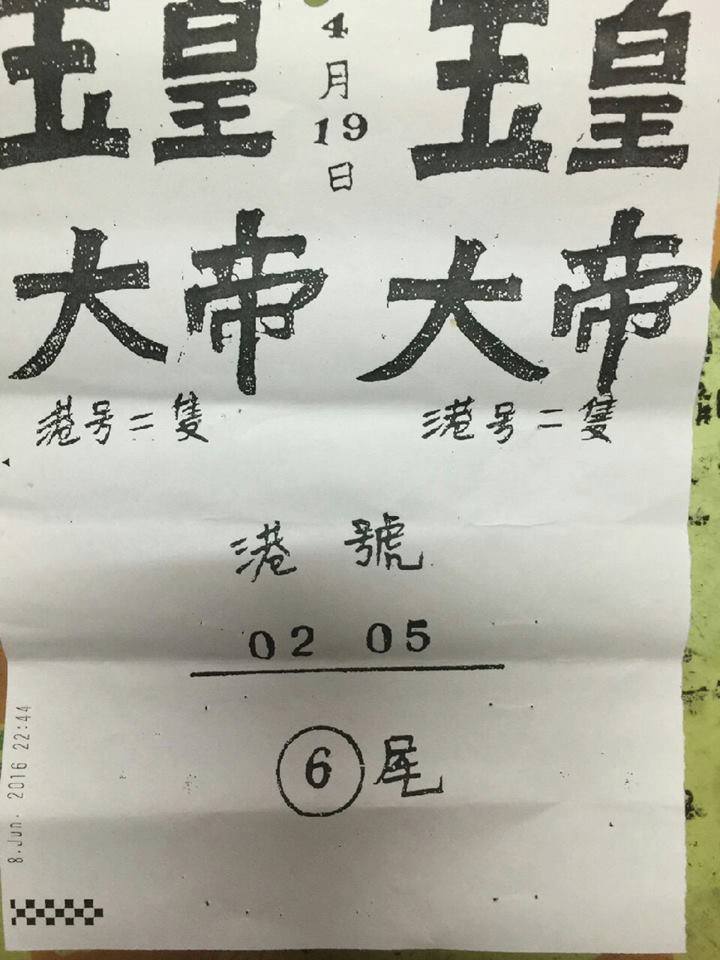 4月19日
玉皇 玉皇
大帝 大帝
港号二隻 港号二隻
港號
02 05
6尾
8.Jun. 2016 22:44